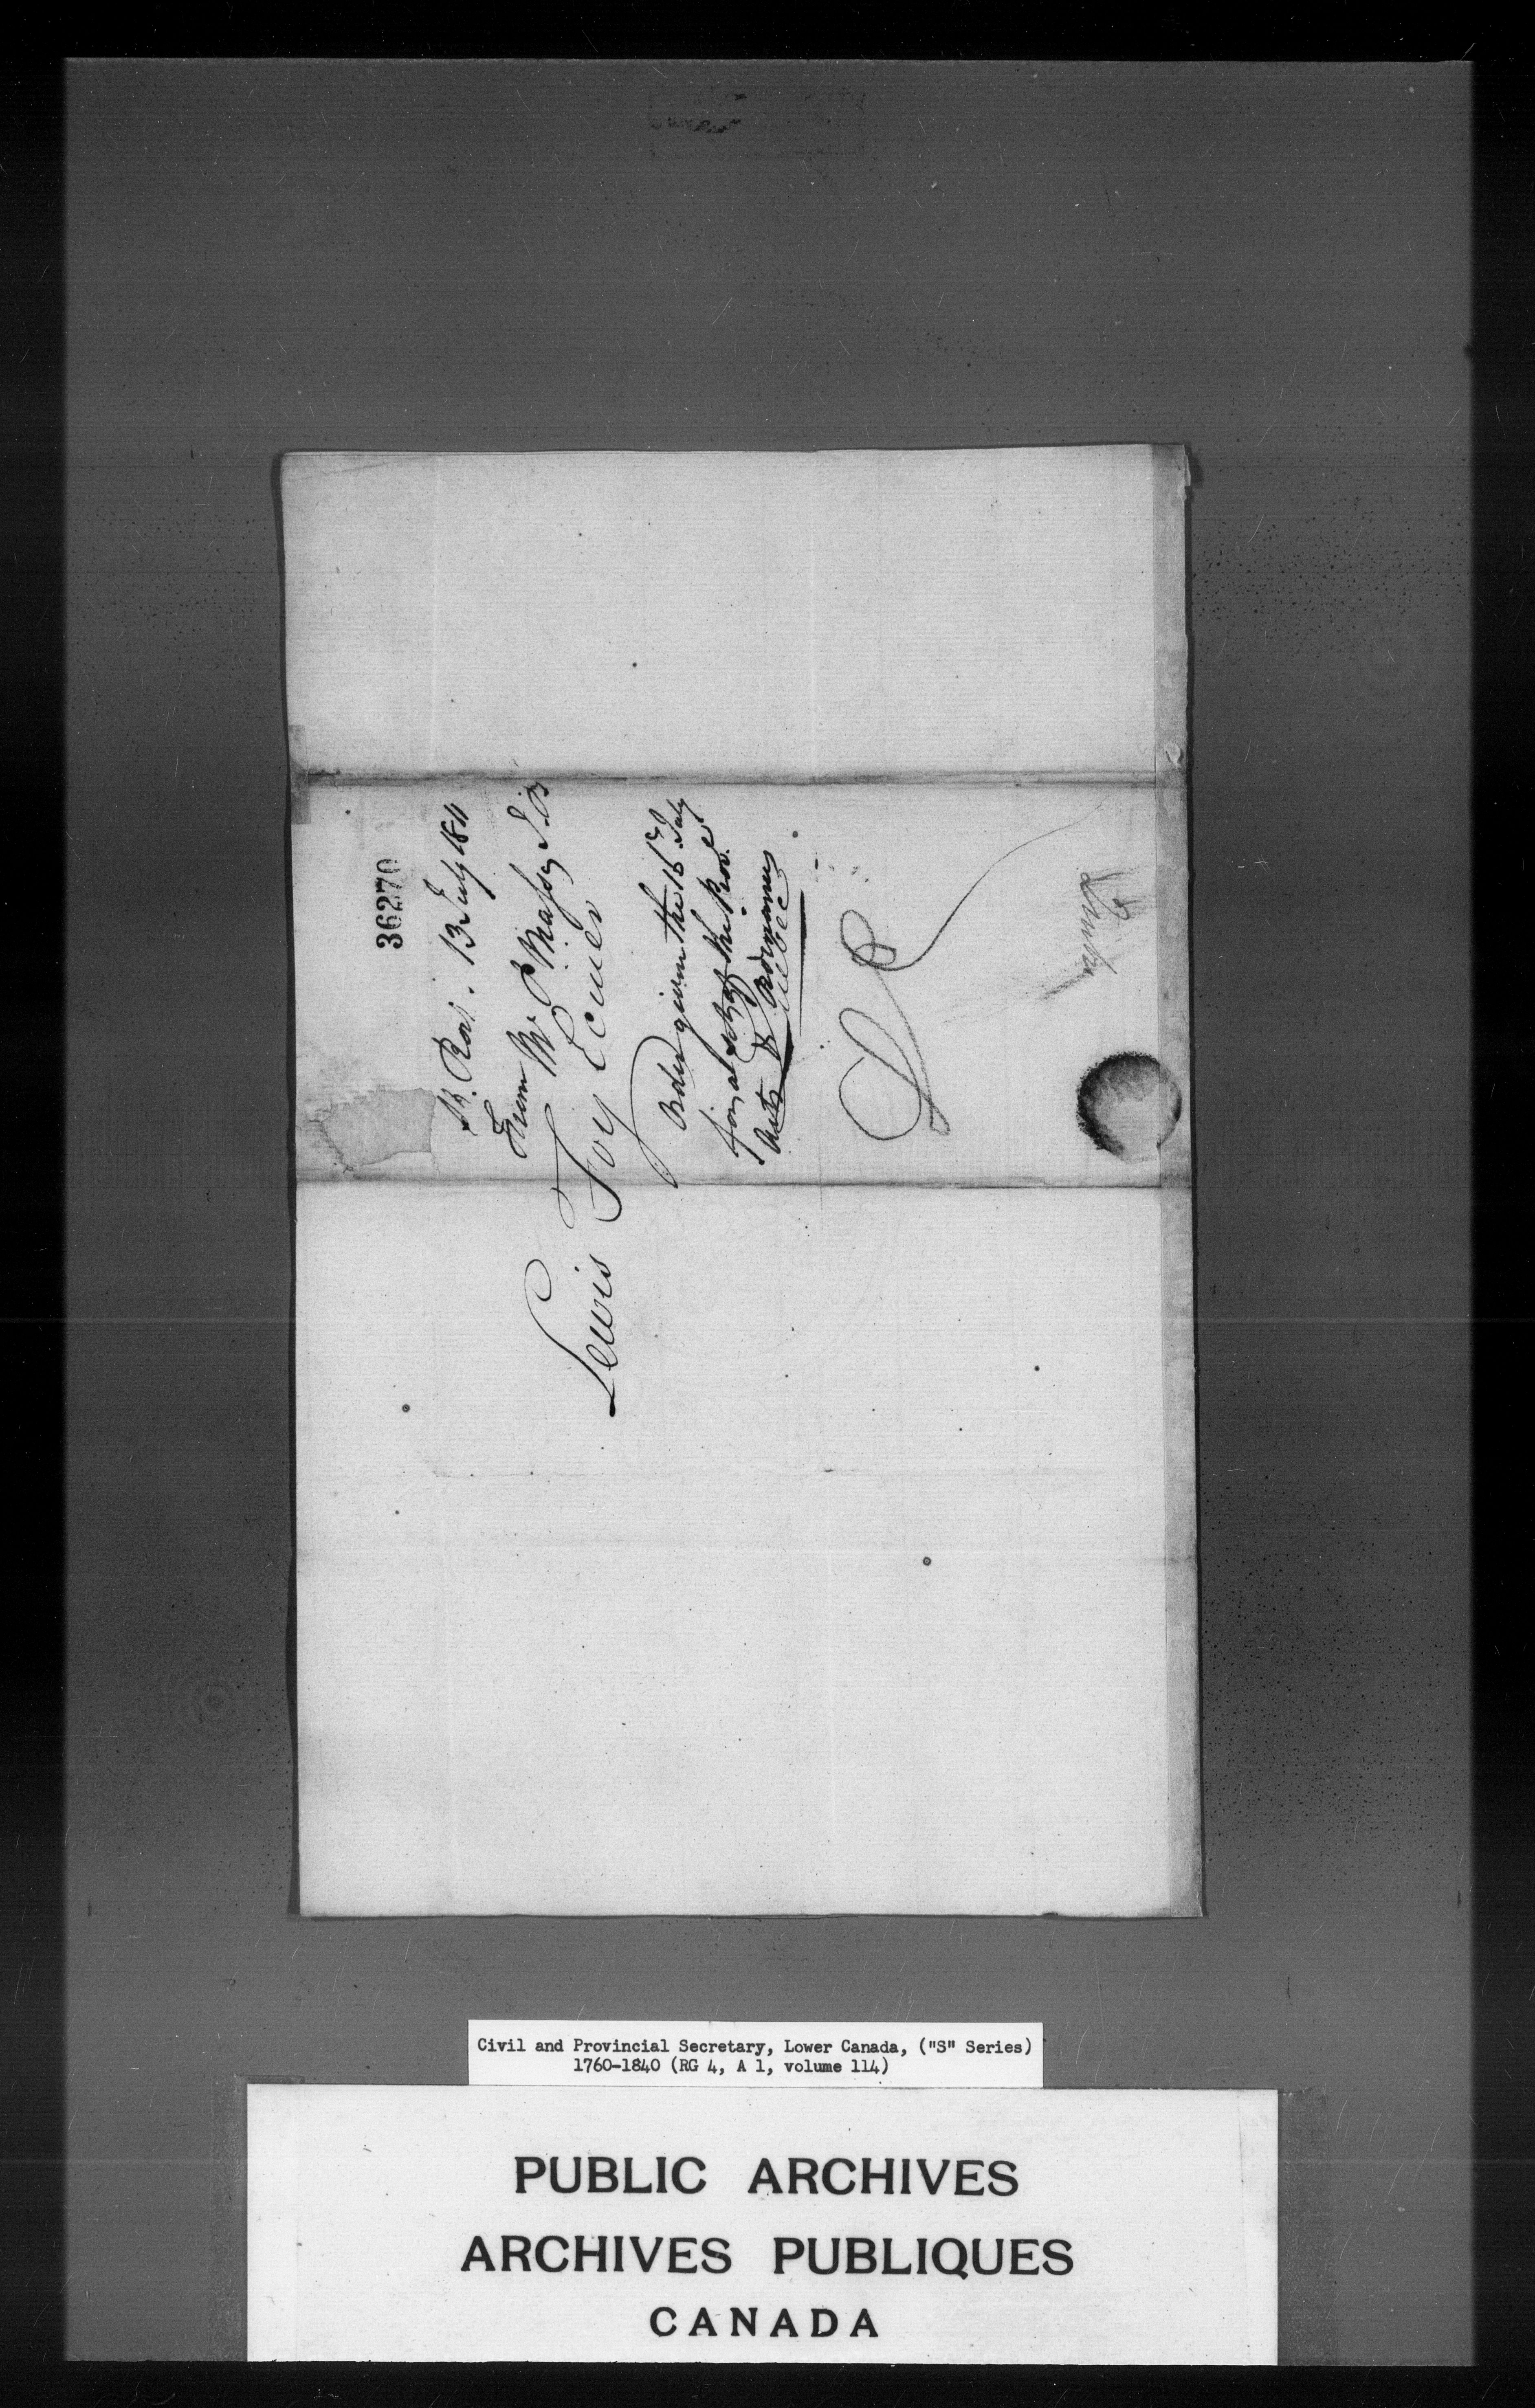 36270
13 July 1811
From Mr. P Massey J.P.
Lewis Foy Ecuer
Order given the 16th July
for a set of the Prov.
Acts & Ordinances
Quebec
Civil and Provincial Secretary, Lower Canada, ("S" Series)
1760-1840 (RG 4, A 1, volume 114)
PUBLIC ARCHIVES
ARCHIVES PUBLIQUES
CANADA